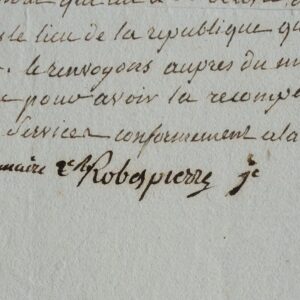 le lieu de la republique qu
. le renvoyons aupres du m
pour avoir la recompe
services conformement a la
maire Robespierre je